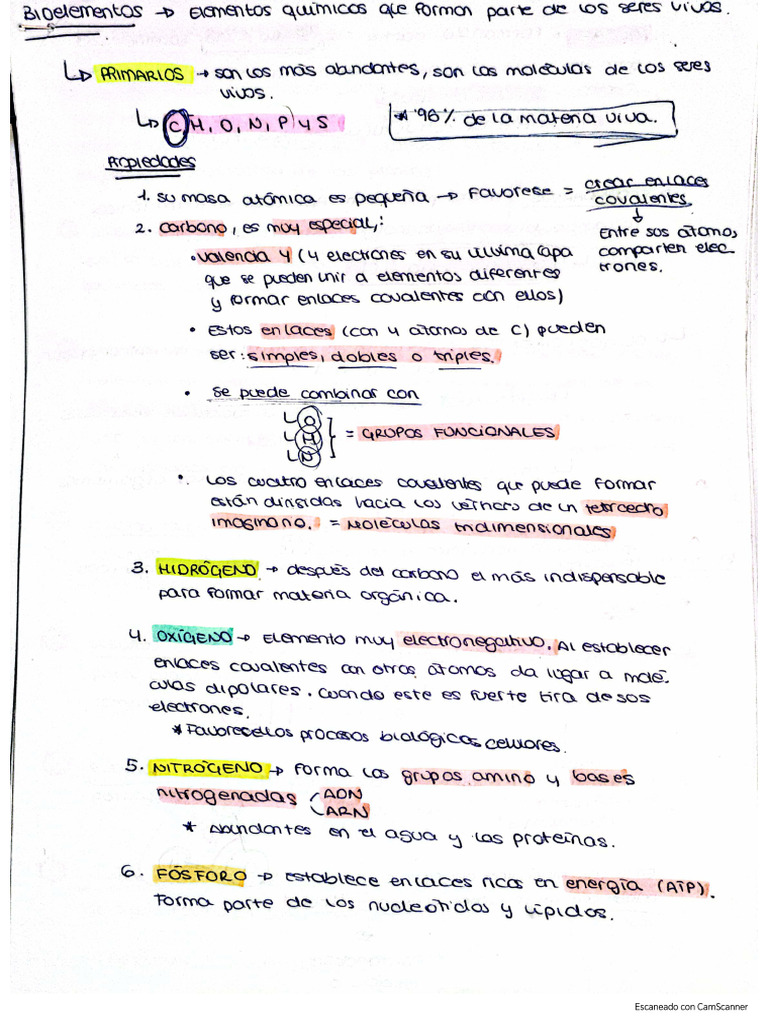 BIOelementos → Elementos químicos que forman parte de los seres vivos.
↳ PRIMARIOS → son los más abundantes, son las moléculas de los seres
vivos.
↳ C, H, O, N, P y S
* 96% de la materia viva.
Propiedades
1. su masa atómica es pequeña → Favorese = crear enlaces
covalentes
↓
Entre sos átomo,
comparten elec
trones.
2. carbono, es muy especial,:
• valencia 4 (4 electrones en su última capa
que se pueden unir a elementos diferentes
y formar enlaces covalentes con ellos)
• Estos enlaces (con 4 átomos de C) pueden
ser: simples, dobles o triples.
• Se puede combinar con
↳ O
↳ H
↳ N
} = GRUPOS FUNCIONALES
• Los cuatro enlaces covalentes que puede formar
están dirigidas hacia los vértices de un tetraedro
imaginario. = Moléculas tridimensionales
3. HIDRÓGENO → después del carbono el más indispensable
para formar materia orgánica.
4. OXÍGENO → Elemento muy electronegativo. Al establecer
enlaces covalentes con otros átomos da lugar a molé
culas dipolares. Cuando este es fuerte tira de sos
electrones.
* Favorece los procesos biológicos celulores.
5. NITRÓGENO → Forma los grupos amino y bases
nitrogenadas ADN
ARN
* Abundantes en el agua y las proteínas.
6. FÓSFORO → establece enlaces ricos en energía (ATP).
Forma parte de los nucleótidos y lípidos.
Escaneado con CamScanner